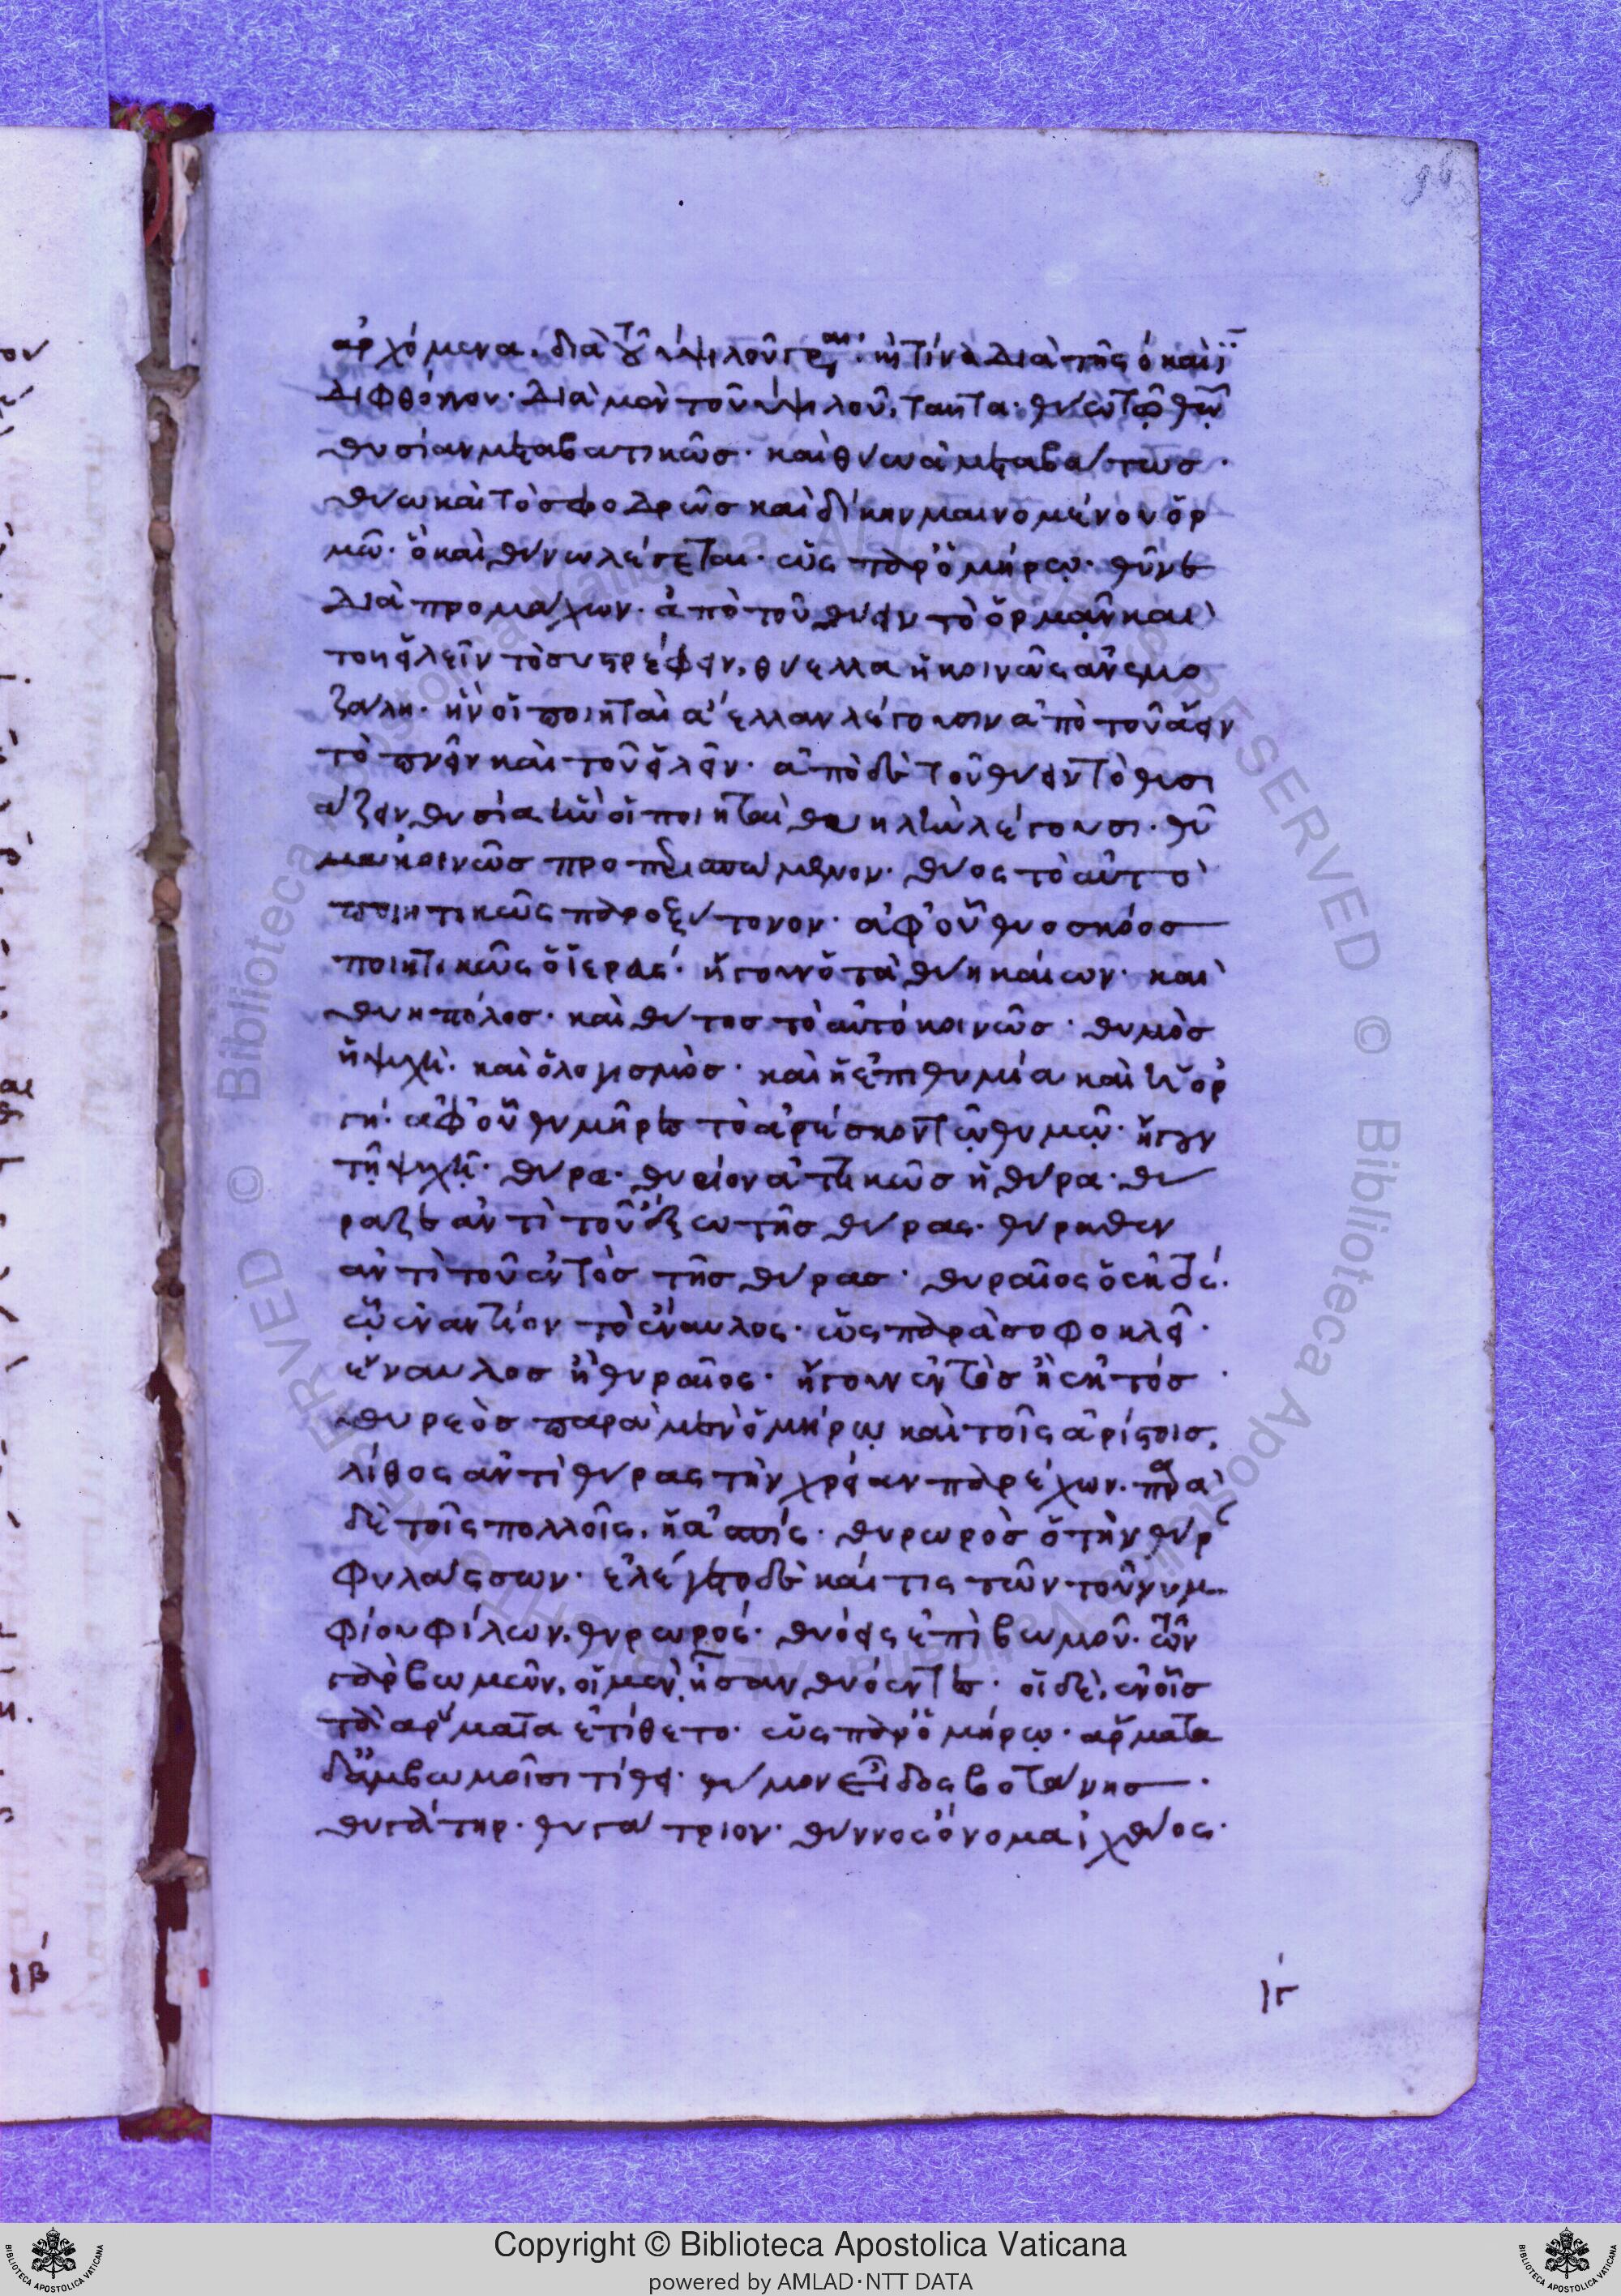 ἀρχόμενα, διὰ τοῦ υ ψιλοῦ γράφεται· ἢ τίνα διὰ τῆς ο καὶ ϊ
διφθόγγου. διὰ μὲν τοῦ υ ψιλοῦ, ταῦτα. θύω τῷ θεῷ
θυσίαν μεταβατικῶς. καὶ θύω ἀμεταβάτως.
θύω καὶ τὸ σφοδρῶς καὶ δίκην μαινομένου ὁρ
μῶ. ὃ καὶ θύνω λέγεται. ὡς παρ' ὁμήρῳ. θῦνε
διὰ προμάχων. ἀπὸ τοῦ θύειν τὸ ὁρμᾶν καὶ
τοῦ εἰλεῖν τὸ συστρέφειν, θύελλα ἡ κοινῶς ἀνεμο
ζάλη. ἣν οἱ ποιηταὶ ἄελλαν λέγουσιν ἀπὸ τοῦ ἄειν
τὸ πνεῖν καὶ τοῦ εἰλεῖν. ἀπὸ δὲ τοῦ θύειν τὸ θυσι
άζειν θυσία ἣν οἱ ποιηταὶ θυηλὴν λέγουσι. θῦ
μα κοινῶς προπερισπώμενον. θύος τὸ αὐτὸ
ποιητικῶς παροξύτονον. ἀφ' οὗ θυοσκόος
ποιητικῶς ὁ ἱερεύς. ἤγουν ὁ τὰ θύη καίων. καὶ
θυηπόλος. καὶ θύτης τὸ αὐτὸ κοινῶς. θυμὸς
ἡ ψυχὴ. καὶ ὁ λογισμὸς. καὶ ἡ ἐπιθυμία καὶ ἡ ὀρ
γή. ἀφ' οὗ θυμῆρες τὸ ἀρέσκον τῷ θυμῷ. ἤγουν
τῇ ψυχῇ. θύρα. θύριον ἀττικῶς ἡ θύρα. θύ
ραζε ἀντὶ τοῦ ἔξω τῆς θύρας. θύραθεν
ἀντὶ τοῦ ἐντὸς τῆς θύρας. θυραῖος ὁ ἐκτός.
ᾧ ἐναντίον τὸ ἔναυλος. ὡς παρὰ σοφοκλεῖ.
ἔναυλος ἢ θυραῖος. ἤγουν ἐντὸς ἢ ἐκτός.
θυρεὸς παρὰ μὲν ὁμήρῳ καὶ τοῖς ἀρίστοις,
λίθος ἀντὶ θύρας τὴν χρείαν παρέχων. παρὰ
δὲ τοῖς πολλοῖς, ἡ ἀσπίς. θυρωρὸς ὁ τὴν θύρ
φυλάσσων. ἐλέγετο δὲ καί τις τῶν τοῦ νυμ
φίου φίλων, θυρωρός. θυόεις ἐπὶ βωμοῦ. τῶν
γὰρ βωμῶν, οἱ μὲν ἦσαν θυόεντες. οἱ δὲ, ἐν οἷς
τὰ ἅρματα ἐτίθετο. ὡς παρ' ὁμήρῳ. ἅρματα
δ' ἂμ βωμοῖσι τίθει. θύμον εἶδος βοτάνης.
θυγάτηρ. θυγάτριον. θύννος ὄνομα ἰχθύος.
ιγ
ιβ
Copyright © Biblioteca Apostolica Vaticana
powered by AMLAD·NTT DATA